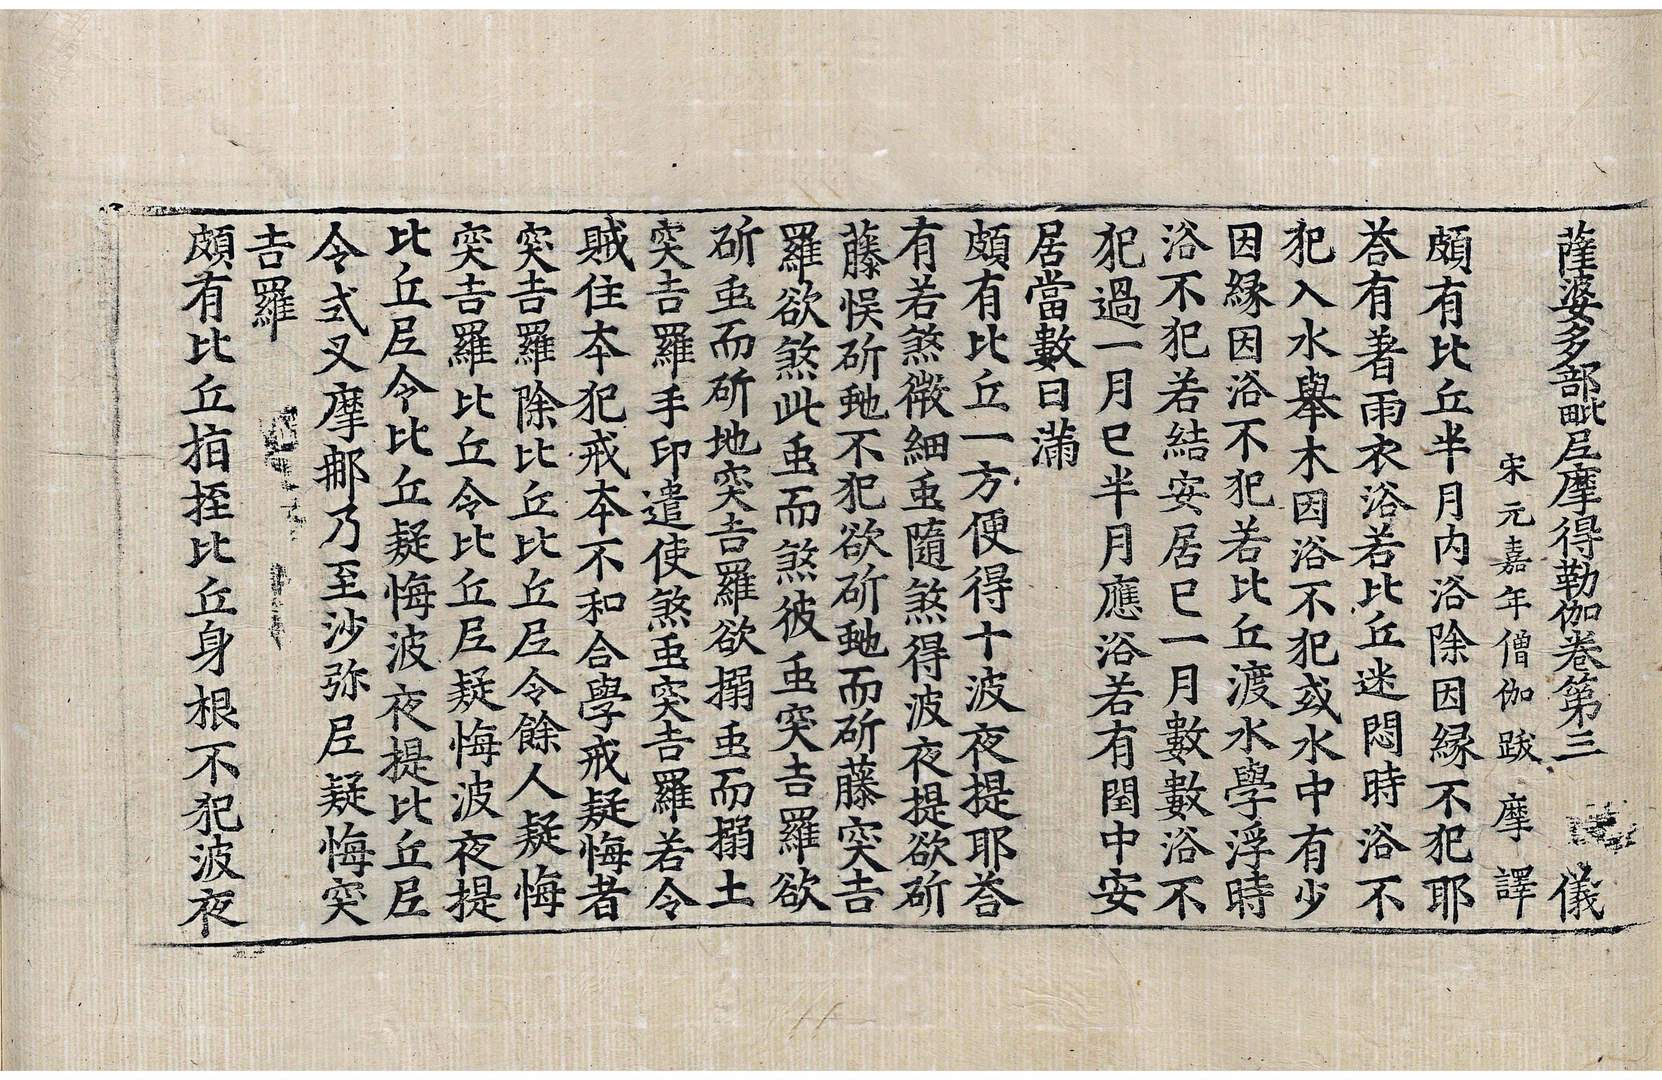 薩婆多部毗尼摩得勒伽卷第三 儀
宋元嘉年僧伽跋摩譯
頗有比丘半月内浴除因緣不犯耶
荅有著雨衣浴若比丘迷悶時浴不
犯入水舉木因浴不犯或水中有少
因緣因浴不犯若比丘渡水學浮時
浴不犯若結安居已一月數數浴不
犯過一月已半月應浴若有閏中安
居當數日滿
頗有比丘一方便得十波夜提耶荅
有若煞微細虫隨煞得波夜提欲斫
藤悮斫虵不犯欲斫虵而斫藤突吉
羅欲煞此虫而煞彼虫突吉羅欲
斫虫而斫地突吉羅欲搦虫而搦土
突吉羅手印遣使煞虫突吉羅若令
賊住本犯戒本不和合學戒疑悔者
突吉羅除比丘比丘尼令餘人疑悔
突吉羅比丘令比丘尼疑悔波夜提
比丘尼令比丘疑悔波夜提比丘尼
令式叉摩那乃至沙弥尼疑悔突
吉羅
頗有比丘指挃比丘身根不犯波夜